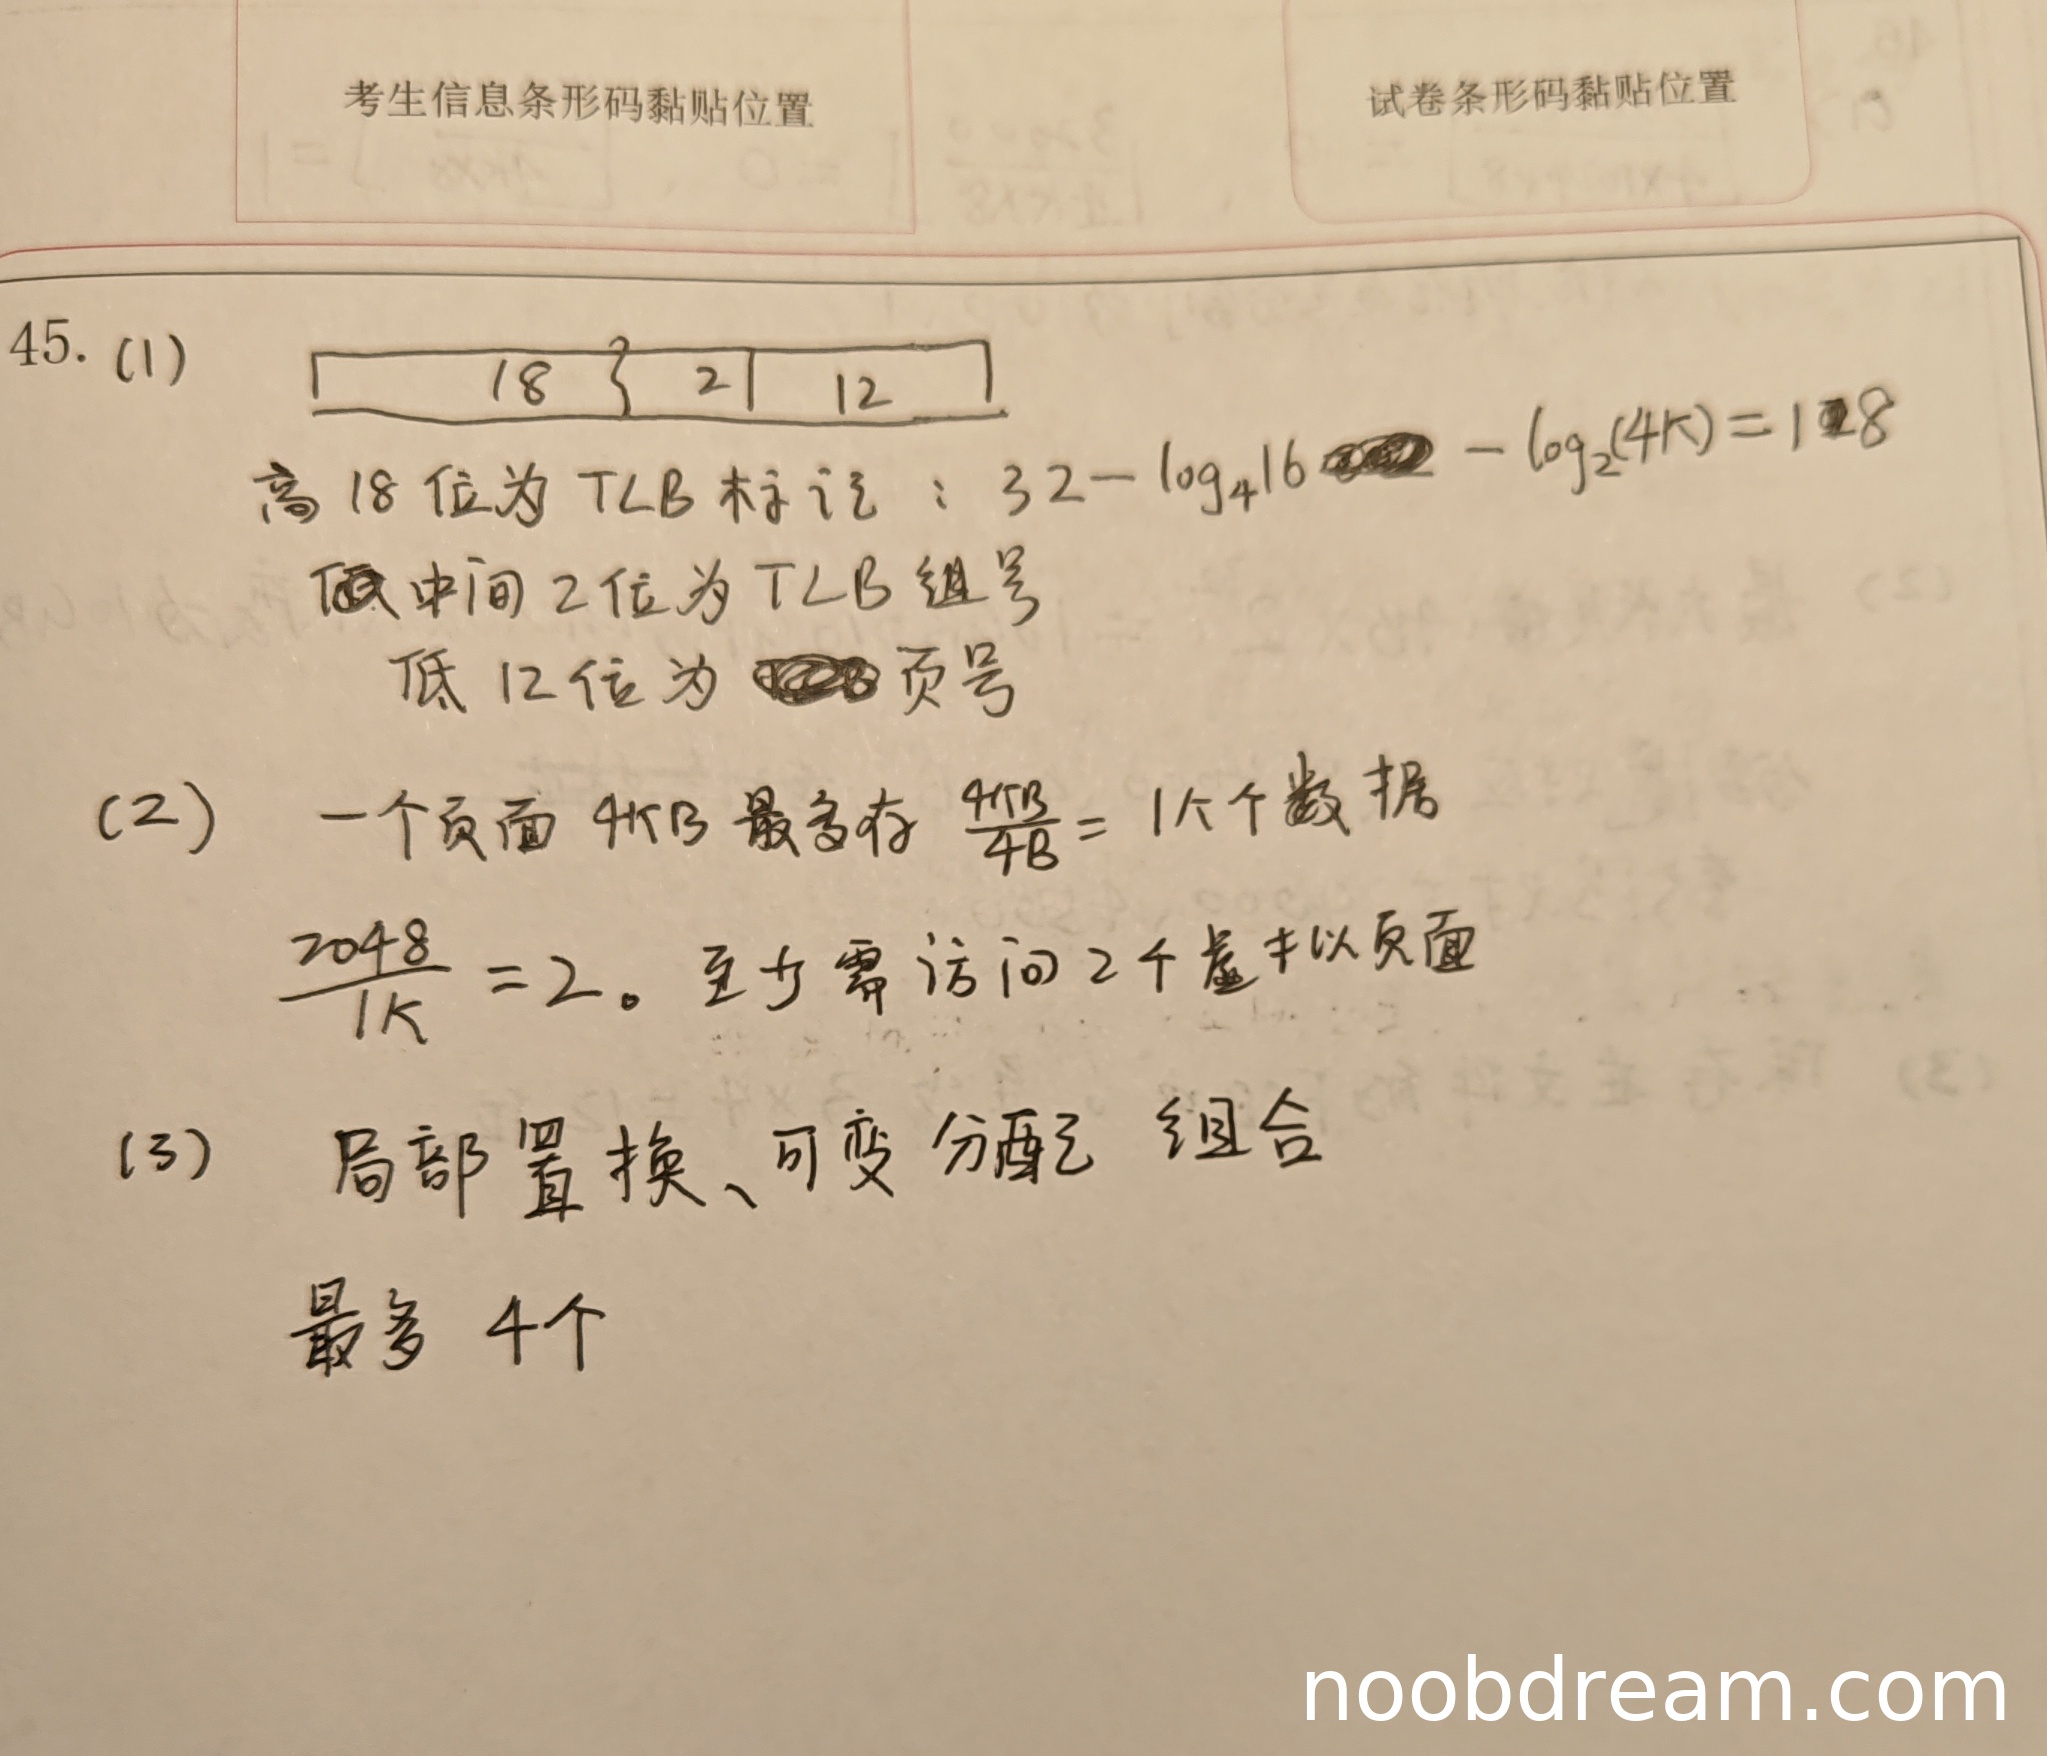 考生信息条形码黏贴位置
试卷条形码黏贴位置
45. (1)
18 2 12
高18位为TLB标记：32-log₄16 - log₂(4K)=18
中间2位为TLB组号
低12位为页号
(2) 一个页面4KB最多存 4KB/4B = 1K个数据
2048/1K =2。至少需访问2个虚拟页面
(3) 局部置换、可变分配 组合
最多 4个
noobdream.com